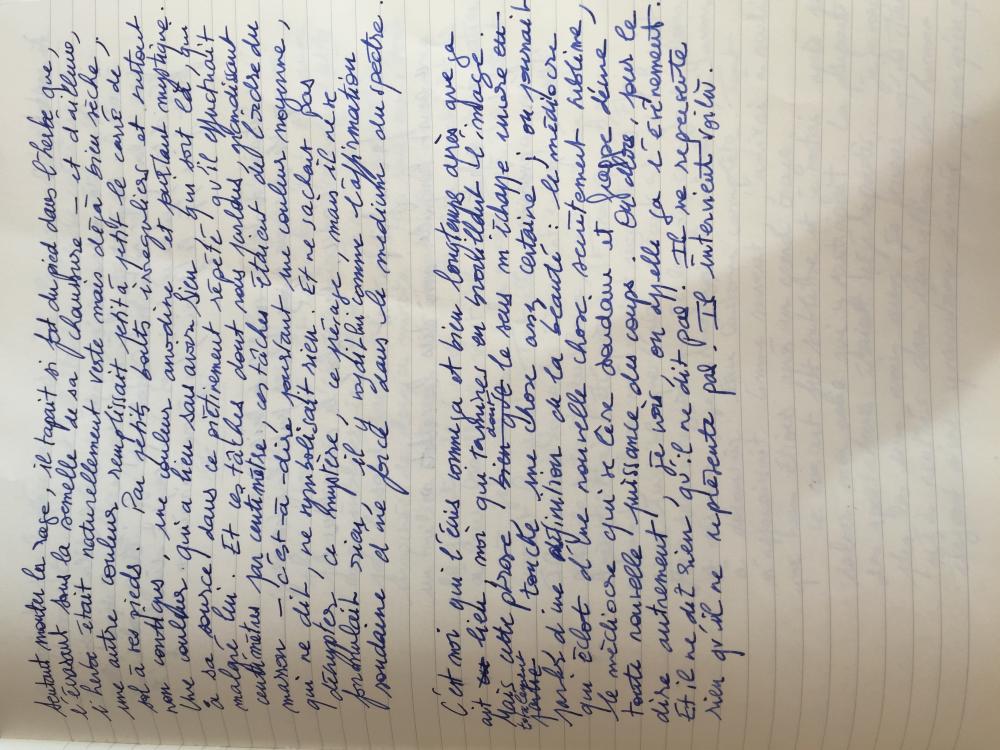 Sentant monter la rage, il tapait si fort du pied dans l'herbe que,
l'écrasant sous la semelle de sa chaussure – et d'ailleurs,
l'herbe était naturellement verte mais déjà bien sèche,
une autre couleur remplissait petit à petit le carré de
sol à ses pieds. Par petits bouts irréguliers et surtout
non contigus, une couleur anodine et pourtant mystique.
Une couleur qui a lieu sans avoir lieu, qui sort là, qui
a sa source dans ce piétinement répété qu'il orchestrait
malgré lui. Et ces tâches dont nous parlons grandissent
centimètres par centimètre, ces tâches étaient de l'ocre du
maison – c'est-à-dire pourtant une couleur moyenne,
qui ne dit, ne symbolisait rien. Et ne réclait pas
décrypter ce mystère, ce présage, mais il ne se
formulait rien, il y voyait lui comme l'affirmation
soudaine d'une force dans le médium du spectre.
C'est moi qui l'écris comme ça et bien longtemps après que ça
ait lieu, moi qui terminerai en brouillant le image.
Mais cette prose, bien que le sens m'échappe encore en-
tièrement, touche une chose assez certaine, on pourrait
parler d'une définition de la beauté : le médiocre
qui éclot d'une nouvelle chose secrètement sublime,
le médiocre qui se lève soudain et frappe d'une
toute nouvelle puissance des coups. Ou alors, pour le
dire autrement, je vois, on appelle ça l'événement.
Et il ne dit rien, qu'il ne dit pas. Il se représente
rien qu'il ne représente pas. Il intervient voilà.